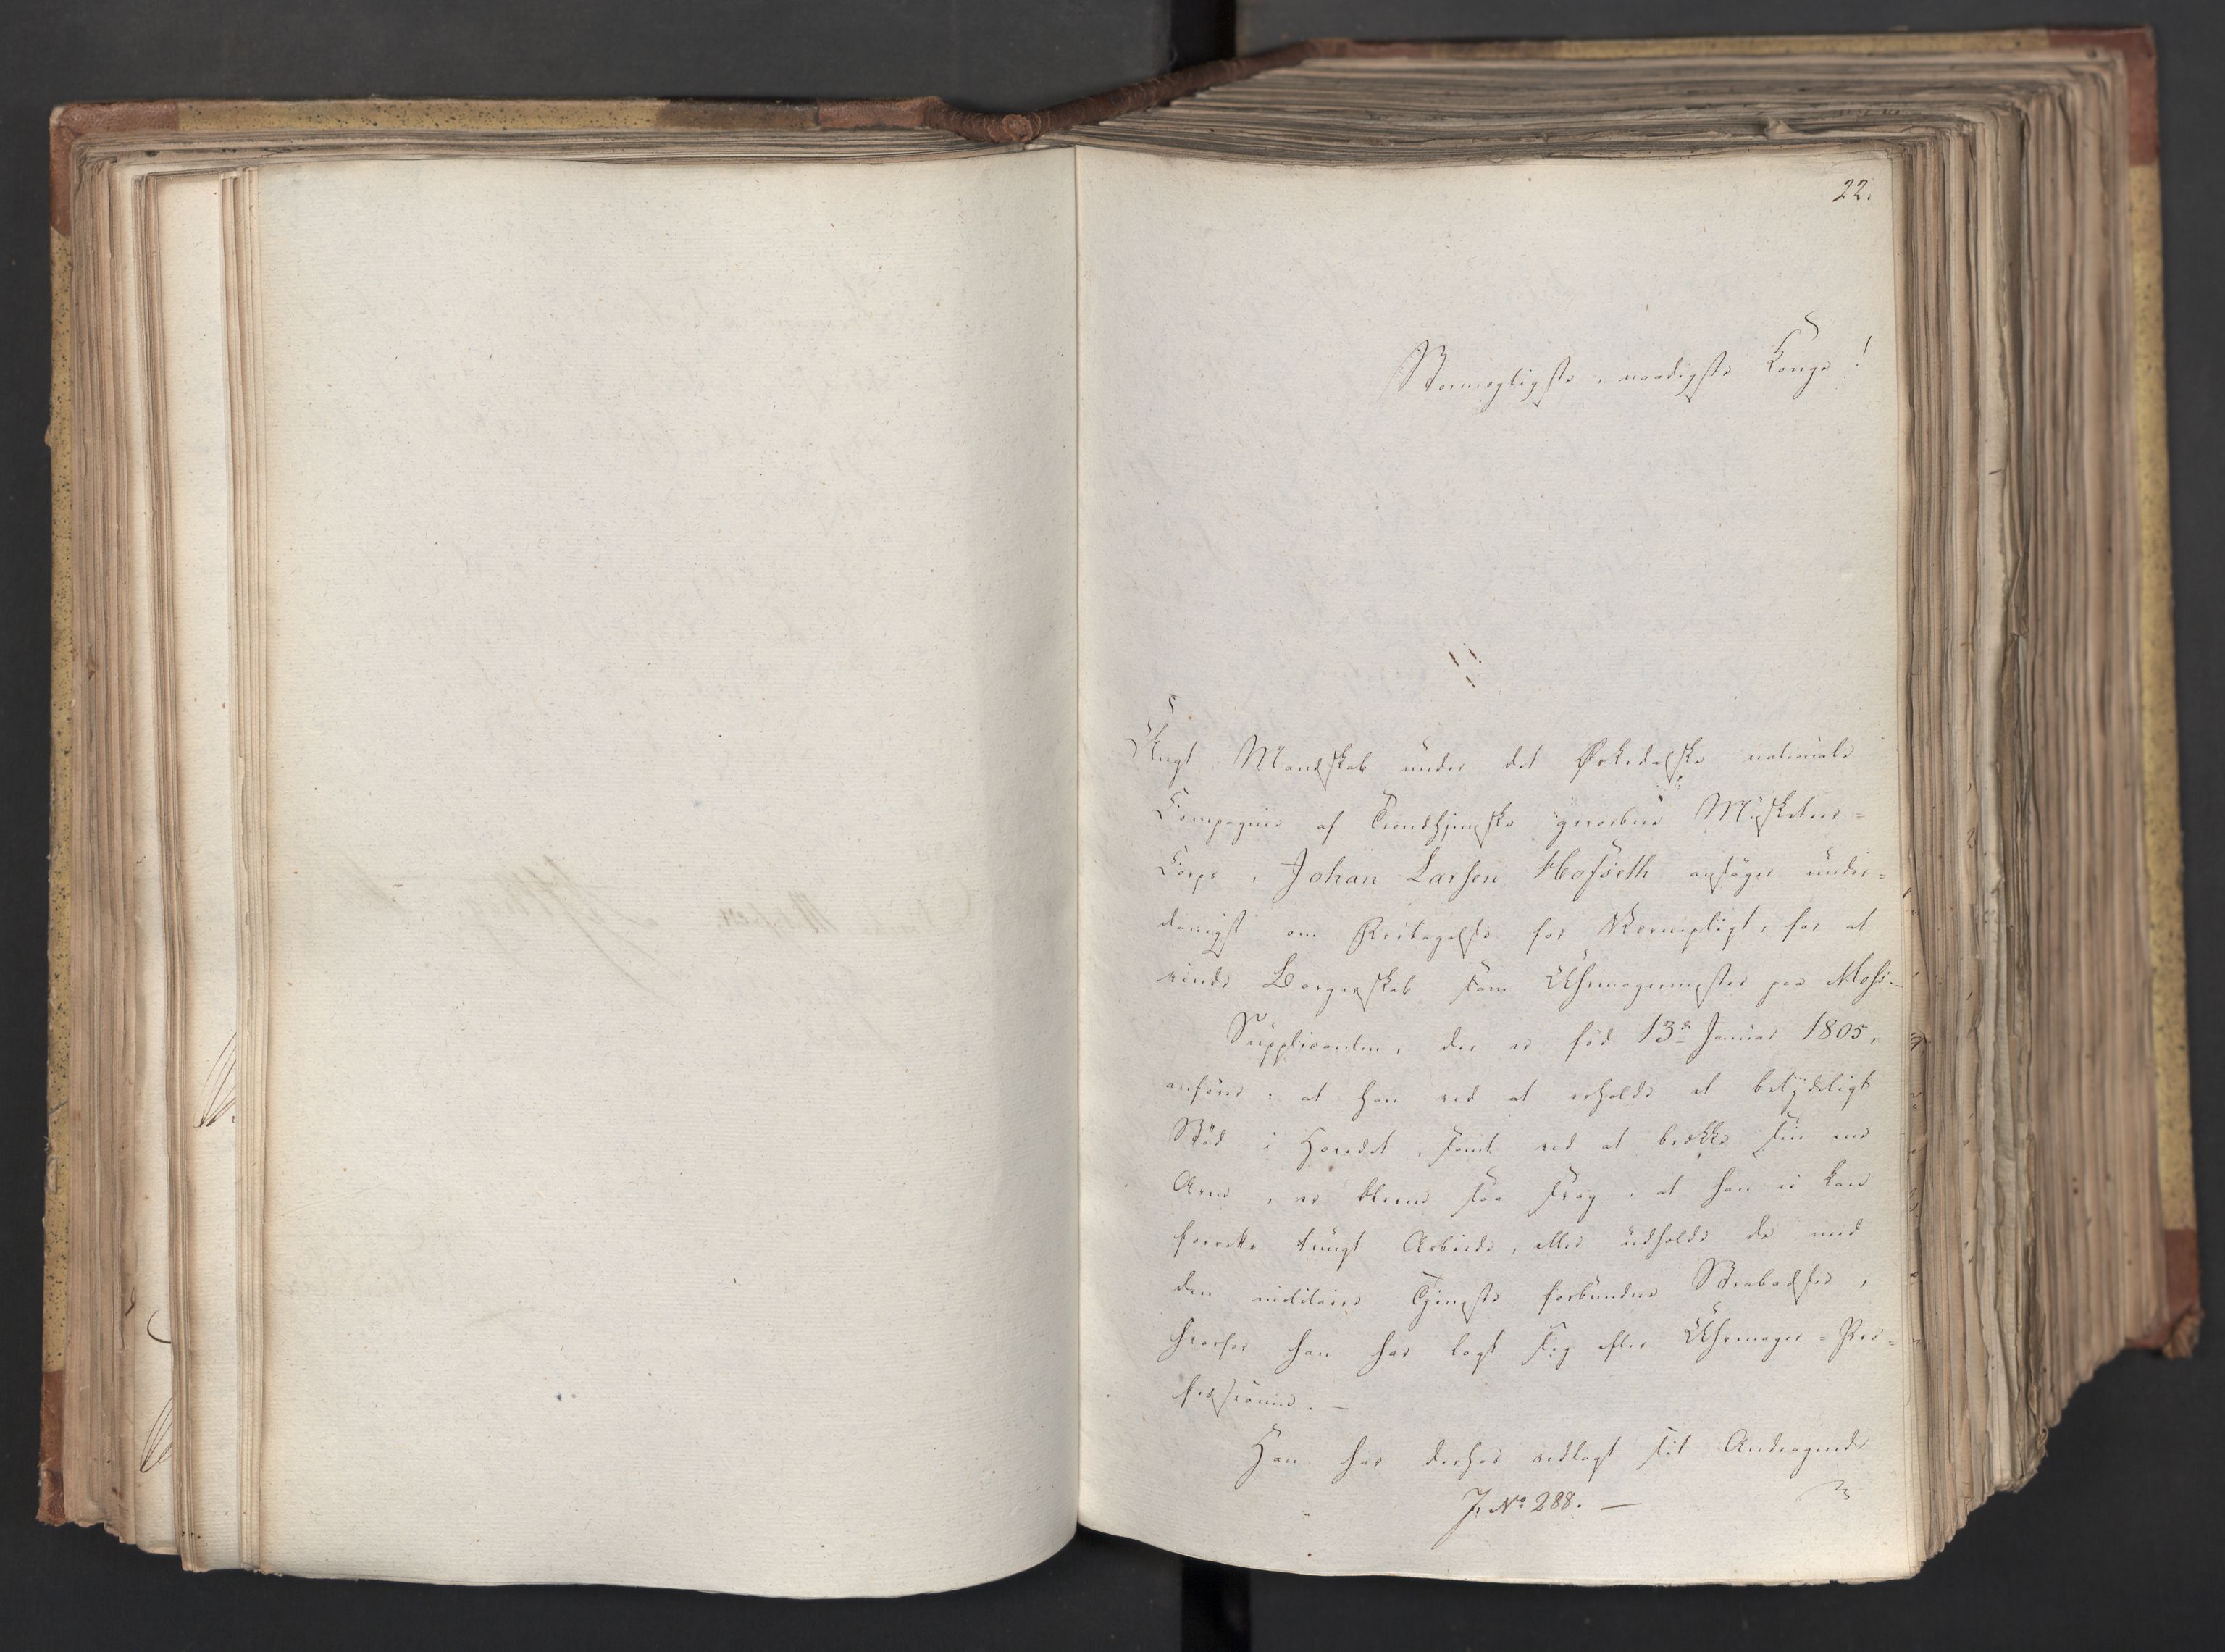 22.
Stormægtigste, naadigste Konge!
Ungt Mandskab under det Örkedalske nationale
Compagnie af Trondhjemske gevorbne Musketeer=
Corps, Johan Larsen Hofseth ansöger under=
danigst om Fritagelse for Værnepligt, for at
vinde Borgerskab som Uhrmagermester paa Moss.
Supplicanten, der er föd 13de Januar 1805,
anförer: at han ved at erholde et betydeligt
Stöd i Hovedet, samt ved at brække sin ene
Arm, er bleven saa svag, at han ei kan
forrette tungt Arbeide, eller udholde de med
den militaire Tjeneste forbundne Strabadser,
hvorfor han har lagt sig efter Uhrmager=Pro=
fessionen. —
Han har derhos vedlagt sit Andragende
J. No 288. —